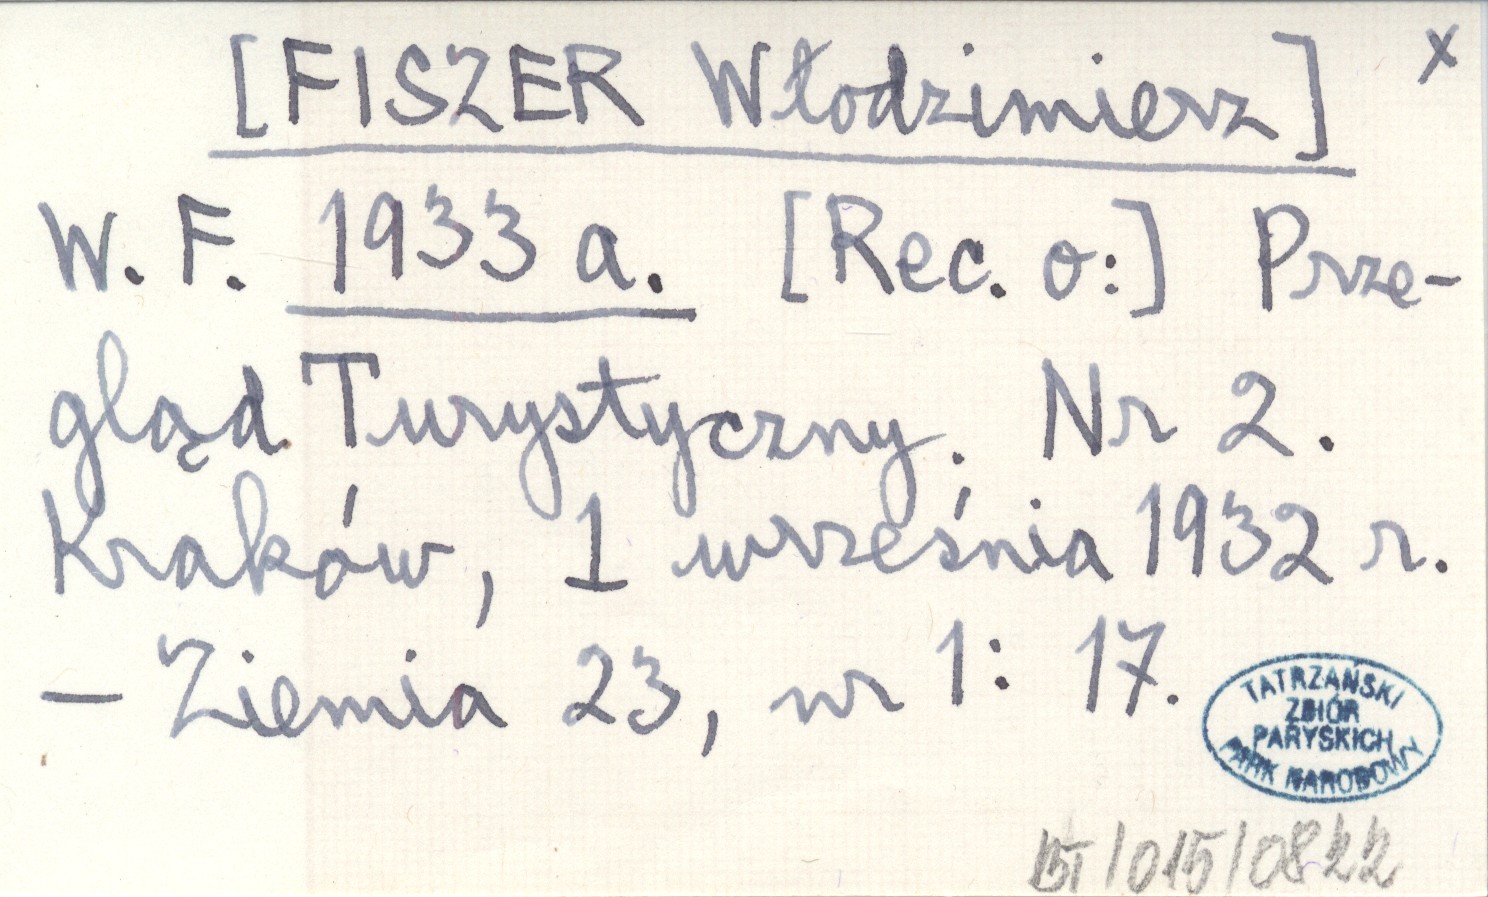 [FISZER Włodzimierz] x
W. F. 1933 a. [Rec. o:] Prze-
gląd Turystyczny. Nr 2.
Kraków, 1 września 1932 r.
— Ziemia 23, nr 1: 17.
TATRZAŃSKI
ZBIÓR
PARYSKICH
PARK NARODOWY
BT/015/0822